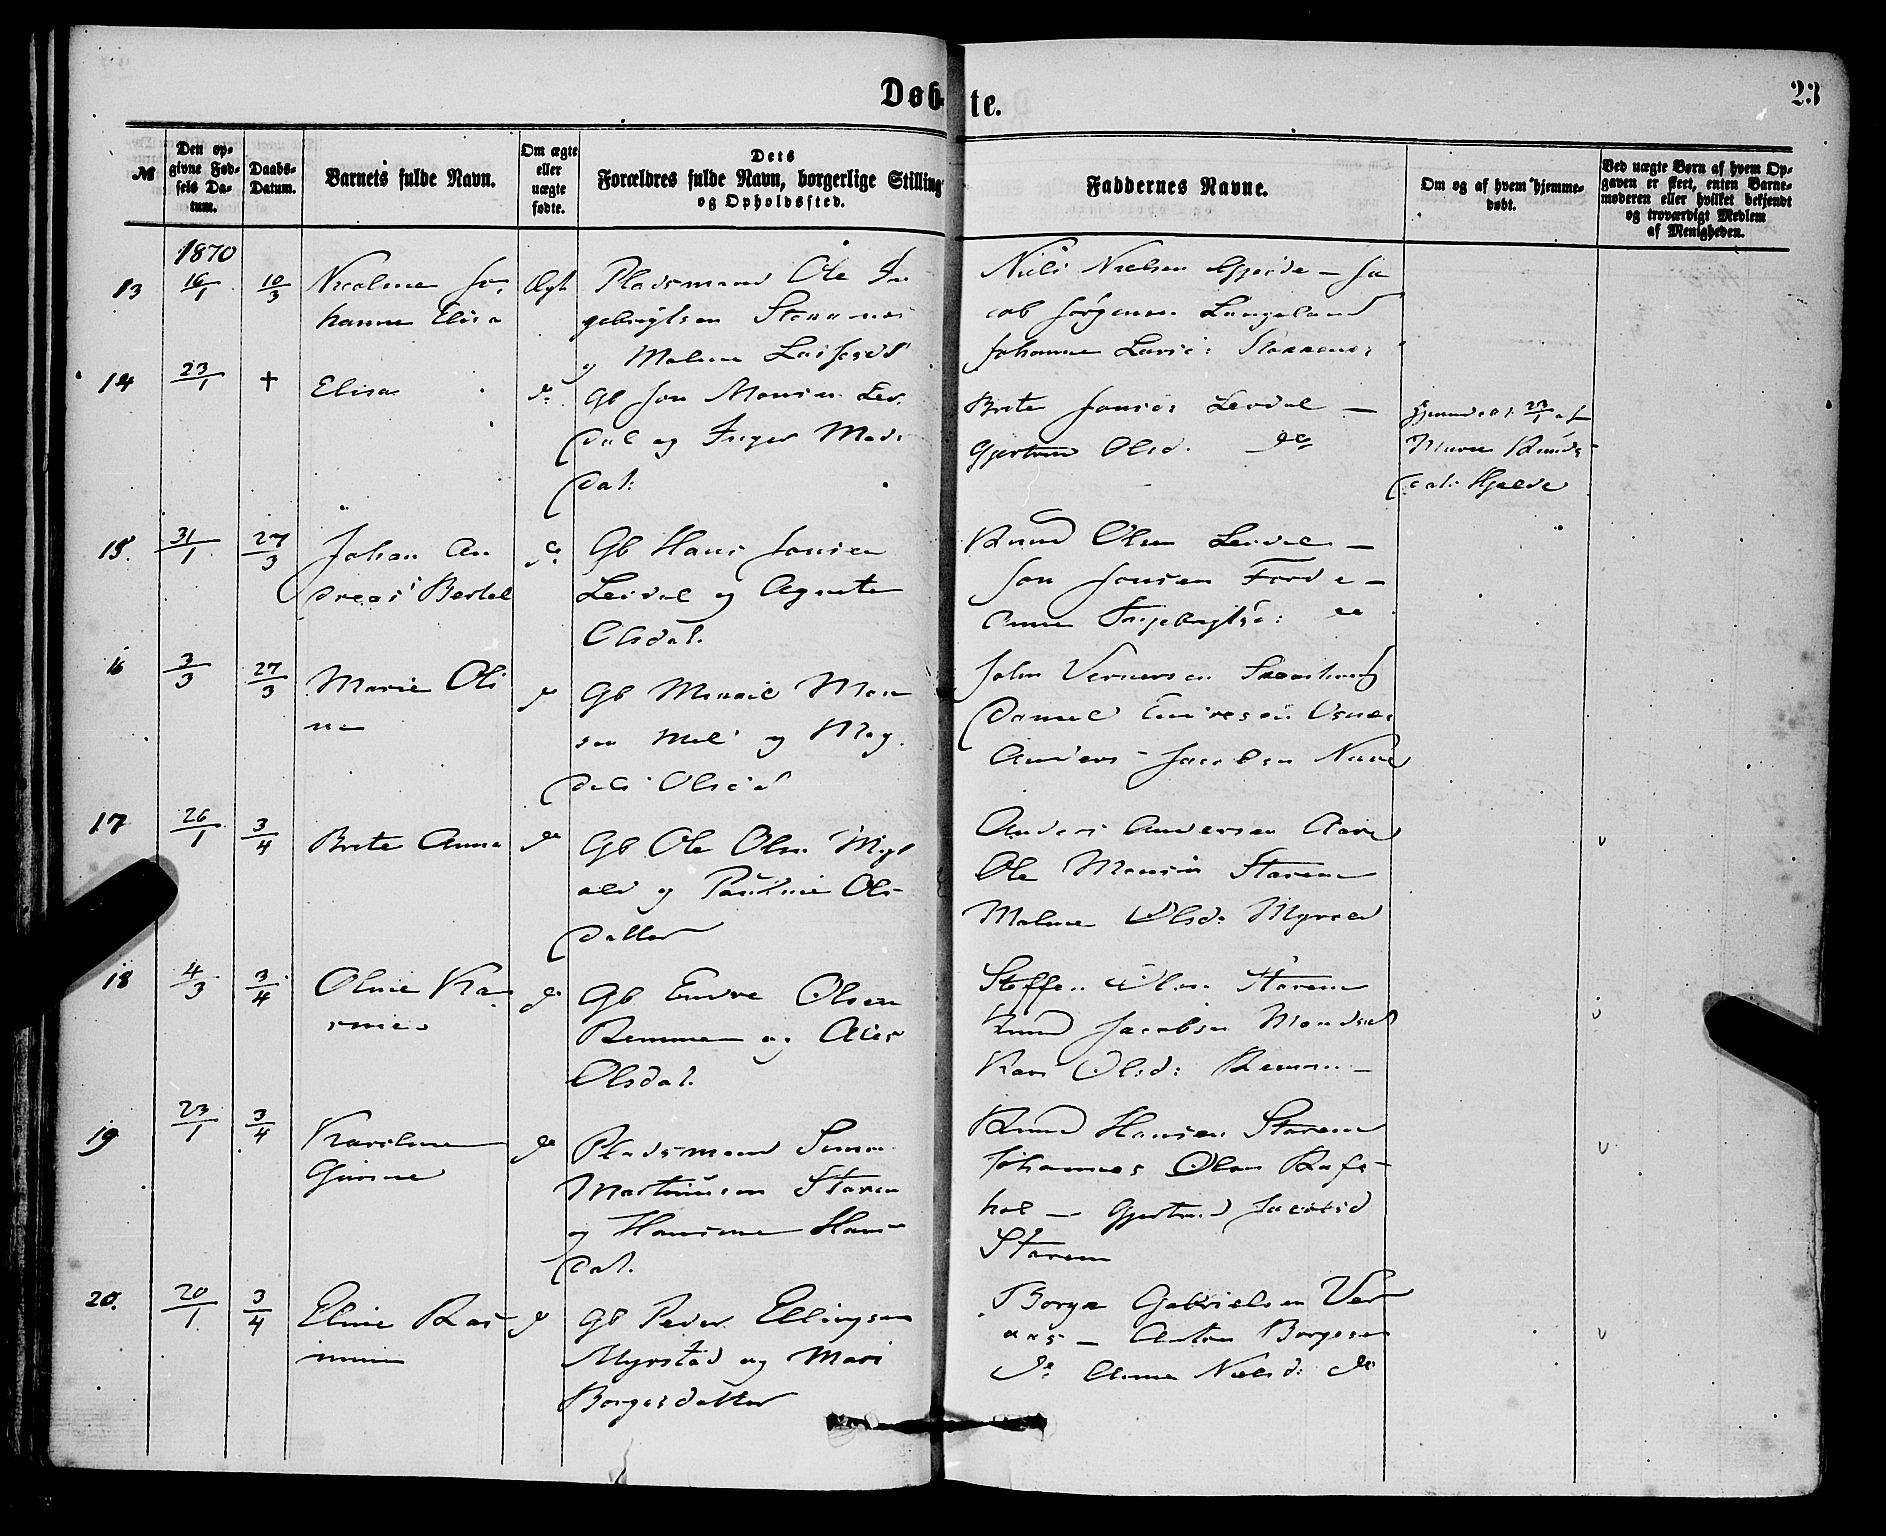 Døbte.
23
№
Den opgivne Fødsels Datum.
Daabs-Datum.
Barnets fulde Navn.
Om ægte eller uægte fødte.
Dets Forældres fulde Navn, borgerlige Stilling og Opholdssted.
Faddernes Navne.
Om og af hvem hjemmedøbt.
Ved uægte Børn af hvem Opgaven er skeet, enten Barnemoderen eller hvilket bekjendt og troværdigt Medlem af Menigheden.
1870
13 16/1 10/3
hanne Elisa
Pladsmand Ole In
gebrigtsen
og Malene
Niels Nielsen Gjerde - Ja
cob Jørgensen Langeland
Johanne
14 23/1 + Elisa do
Gb Jon Monsen Lev
dal og Inger Mads
dat:
Brite Levdal —
Gjertrud Olsd. do
23/1 af
Maren Knuds
dat: Hjelde
15. 31/1 27/3
Johan An
dreas Bertel
do
Gb Hans Jonsen
Levdal og Agnete
Olsdat.
Knud Olsen Levdal —
Jon Jonsen Förde —
Anne Ingebrigtsd: do
16 3/3 27/3
Marie Oli
ne
do
Gb Mon
sen Mel og Mag
dele Olsdd
John
Daniel Osnes
Anders Jacobsen
17 26/1 3/4
Brite Anna do
Gb Ole Olsen Myr
old og Pauline Ols
datter
Anders Andersen
Ole Monsen Starem
Malene Olsd: Myrold
18 4/3 3/4
Oline Ra
smine
do
Gb Endre Olsen
Remmem og
Olsdat.
Steffen Olsen Starem
Knud Jacobsen
Kari Olsd: Remmem —
19 23/1 3/4
Karoline
Gurine
do
Pladsmand
Martinusen Starem
og Hansine Hans
dat.
Knud Hansen Starem
Johannes Olsen
hol — Gjertrud Jacobsd
Starem
20. 20/1 3/4
Eline Ras
mine
do
Gb Peder Ellingsen
Myrstad og Mari
Borgesdatter
Borge Gabrielsen Ver
aas — Anton Borgesen
do Anne Nielsd: do